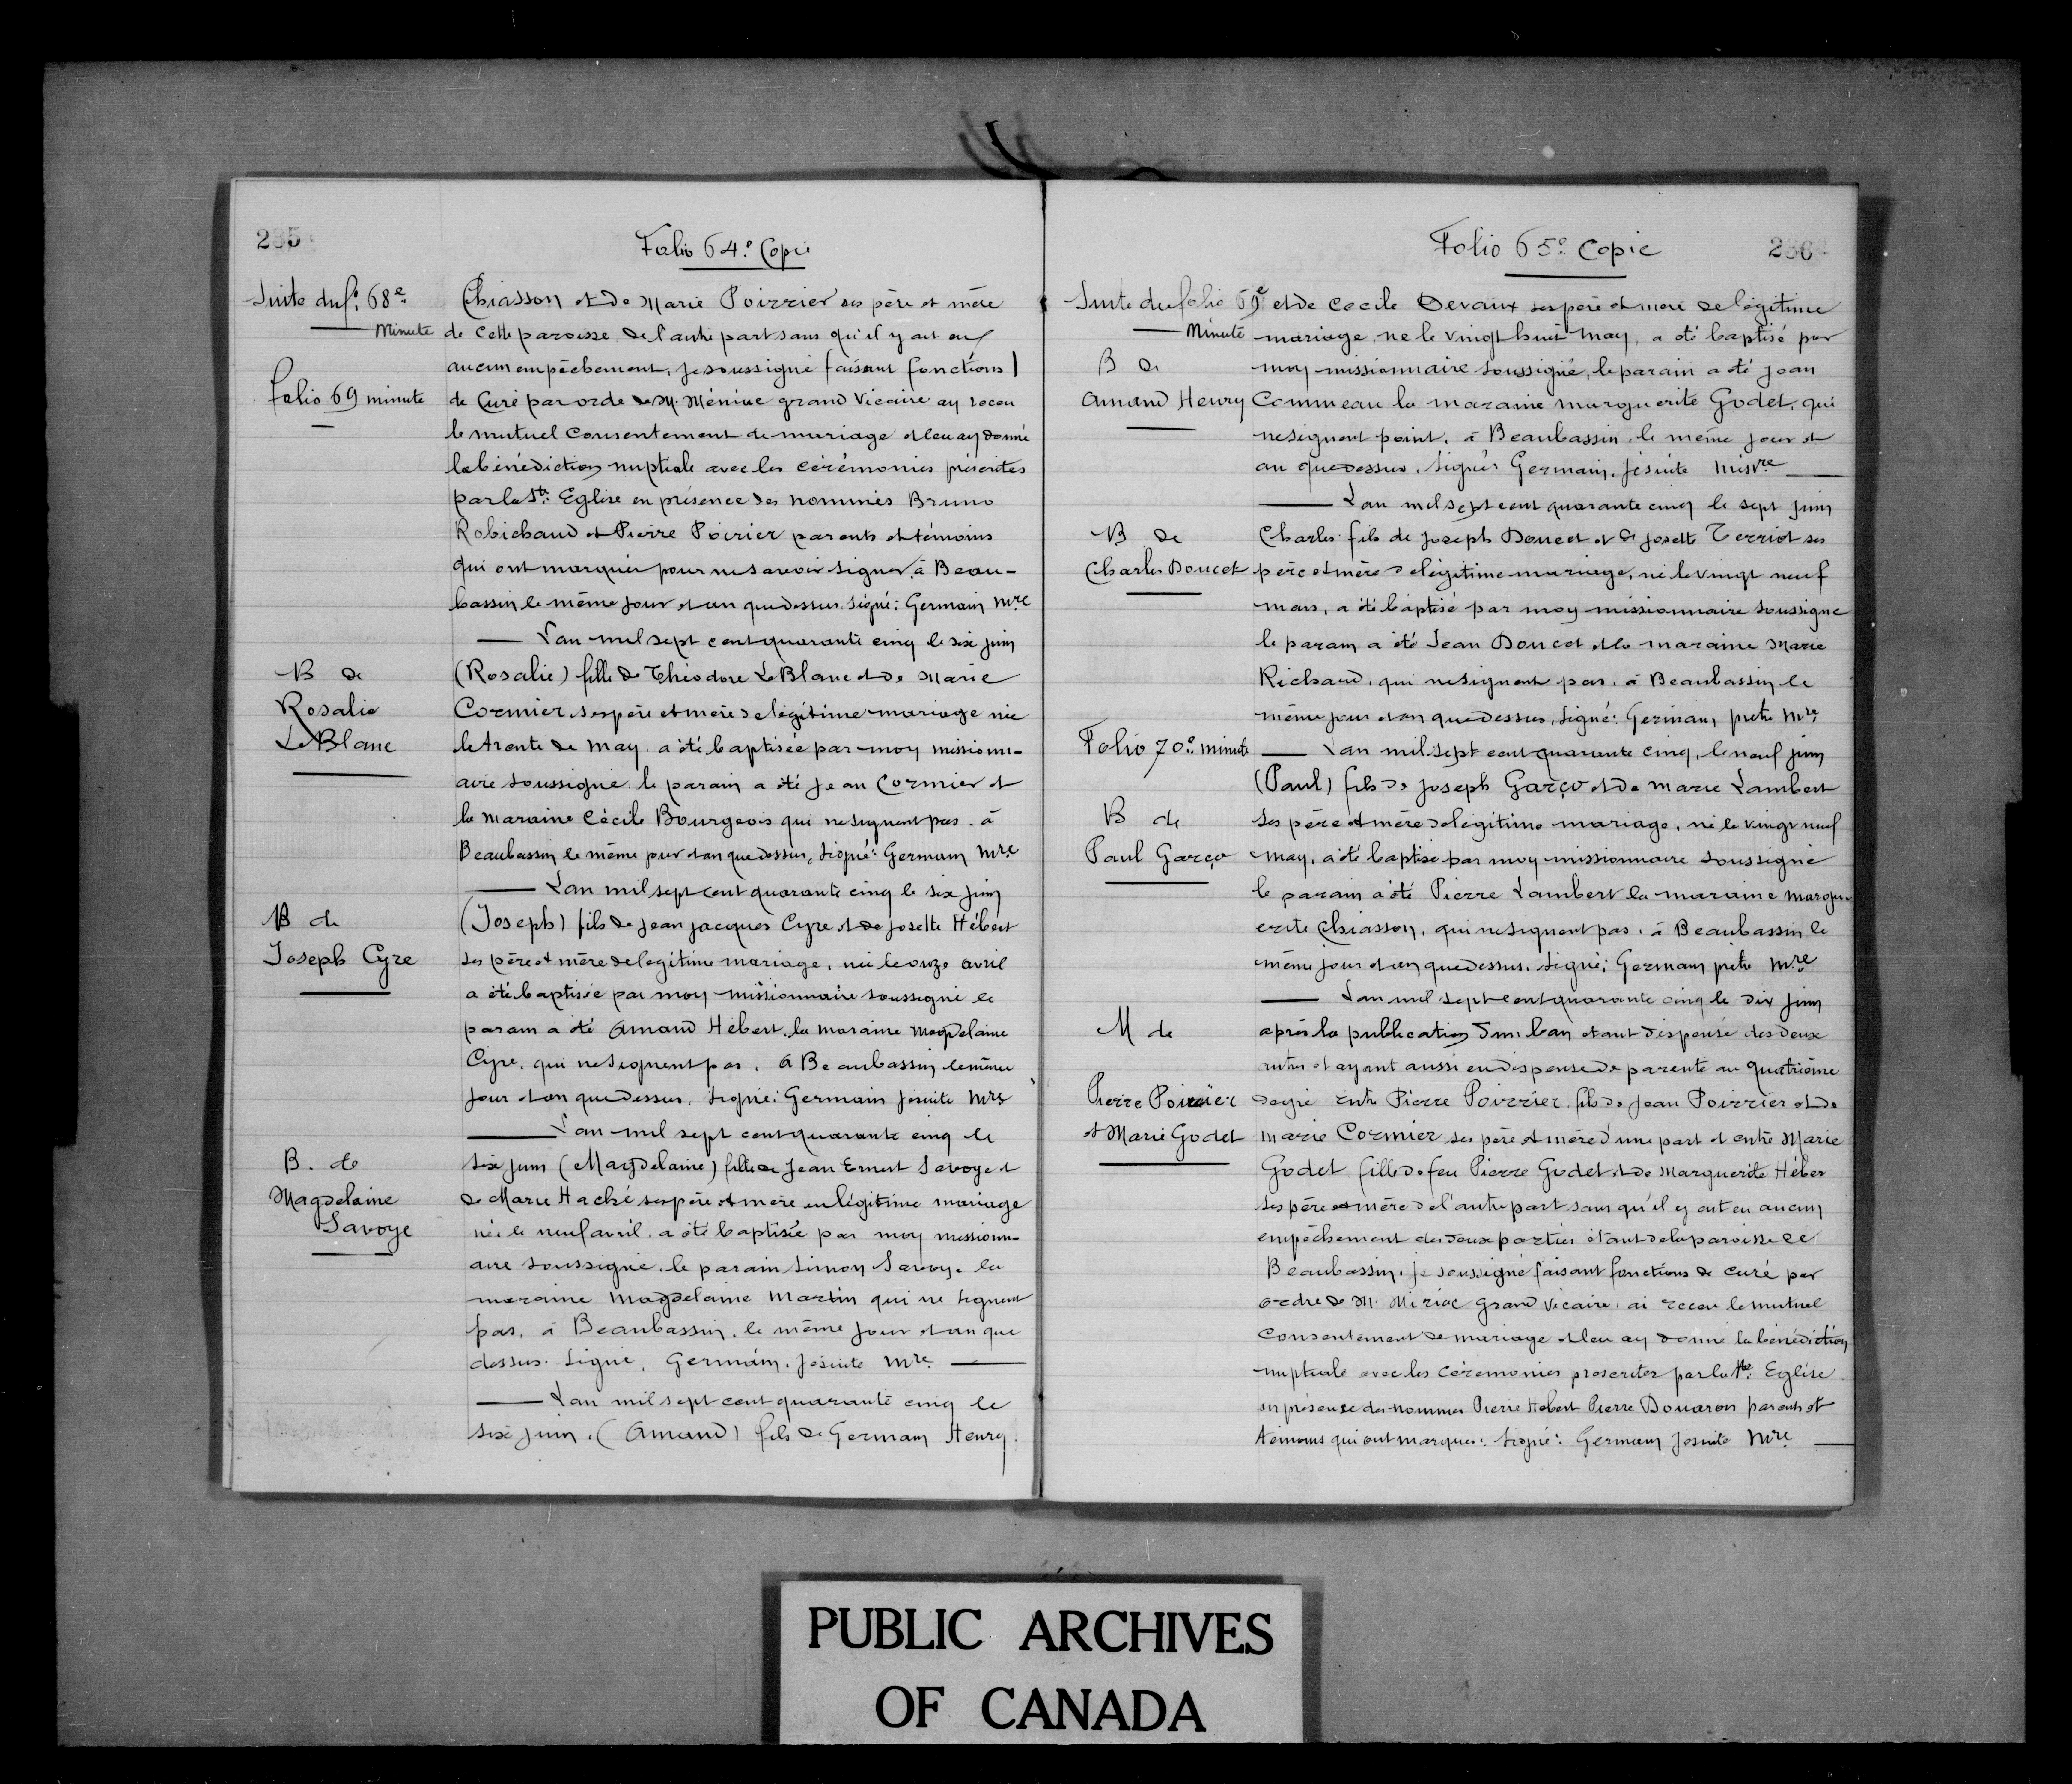 235
Folio 64.e Copie
Suite du f.o 68e
Minute
Chiasson et de Marie Poirrier ses père et mère
de cette paroisse de l'autre part sans qu'il y ait eu
aucun empêchement, je soussigné faisant fonctions
Folio 69 minute
de Curé par orde de M. Méniac grand Vicaire ay receu
le mutuel consentement de mariage et leu ay donné
la bénédiction nuptiale avec les cérémonies préscrites
par la Ste Eglise en présence des nommés Bruno
Robichaud et Pierre Poirier parents et témoins
qui ont marqués pour ne savoir signer, à Beau-
bassin le même jour et an que dessus. Signé: Germain Mre
L'an mil sept cent quarante cinq le six juin
B de
Rosalie
LeBlanc
(Rosalie) fille de Théodore LeBlanc et de Marie
Cormier, ses père et mère de légitime mariage née
le trente de may, a été baptisée par moy missionn-
aire soussigné le parain a été Jean Cormier et
la maraine Cécile Bourgeois qui ne signent pas. à
Beaubassin le même jour et an que dessus, Signé: Germain Mre
L'an mil sept cent quarante cinq le six juin
B de
Joseph Cyre
(Joseph) fils de Jean Jacques Cyre et de Josette Hébert
ses père et mère de legitime mariage, née le onze avril
a été baptisée par moy missionnaire soussigné le
parain a été Amand Hébert, la maraine Magdelaine
Cyre, qui ne signent pas. à Beaubassin le même
jour et an que dessus, Signé: Germain jésuite Mre
L'an mil sept cent quarante cinq le
B. de
Magdelaine
Savoye
six juin (Magdelaine) fille de Jean Ernest Savoye et
de Marie Haché ses père et mère en légitime mariage
née le neuf avril, a été baptisée par moy missionn-
aire soussigné, le parain Simon Savoye la
maraine Magdelaine Martin qui ne signent
pas, à Beaubassin, le même jour et an que
dessus. Signé, Germain, jésuite Mre
L'an mil sept cent quarante cinq le
six juin, (Amand) fils de Germain Henry.
Folio 65e Copie
236
Suite du folio 69e
Minute
et de Cecile Devaux ses père et mère de légitime
mariage, ne le vingt huit may, a été baptisé par
B de
Amand Henry
moy missionnaire soussigné, le parain a été Jean
Commeau la maraine Marguerite Godet, qui
ne signent point, à Beaubassin, le même jour et
an que dessus, Signé: Germain, Jésuite Missre
L'an mil sept cent quarante cinq le sept juin
B de
Charles Doucet
Charles fils de Joseph Doucet et de Josette Terriot ses
père et mère de légitime mariage, né le vingt neuf
mars, a été baptisé par moy missionnaire soussigne
le parain a été Jean Doucet et la maraine Marie
Richaud, qui ne signent pas, à Beaubassin le
même jour et an que dessus, Signé: Germain, prêtre Mre
Folio 70e minute
L'an mil sept cent quarante cinq, le neuf juin
B de
Paul Garço
(Paul) fils de Joseph Garço et de Marie Lambert
ses père et mère de légitime mariage, né le vingt neuf
may, a été baptisé par moy missionnaire soussigné
le parain a été Pierre Lambert la maraine Margu-
erite Chiasson, qui ne signent pas, à Beaubassin le
même jour et an que dessus, Signé; Germain prêtre Mre
L'an mil sept cent quarante cinq le dix juin
M de
Pierre Poirrier
et Marie Godet
après la publication d'un ban étant dispensé des deux
autres et ayant aussi eu dispense de parenté au quatrième
degré entre Pierre Poirrier fils de Jean Poirrier et de
Marie Cormier ses père et mère d'une part et entre Marie
Godet fille de feu Pierre Godet et de Marguerite Héber
ses père et mère de l'autre part sans qu'il y ait eu aucun
empêchement des deux parties étant de la paroisse de
Beaubassin, je soussigné faisant fonctions de curé par
ordre de M. Miriac grand Vicaire, ai receu le mutuel
consentement de mariage et leu ay donné la bénédiction
nuptiale avec les cérémonies prescrites par la Ste Eglise
en présence des nommes Pierre Hébert Pierre Douaron parents et
témoins qui ont marqués. Signé: Germain Jésuite Mre
PUBLIC ARCHIVES
OF CANADA